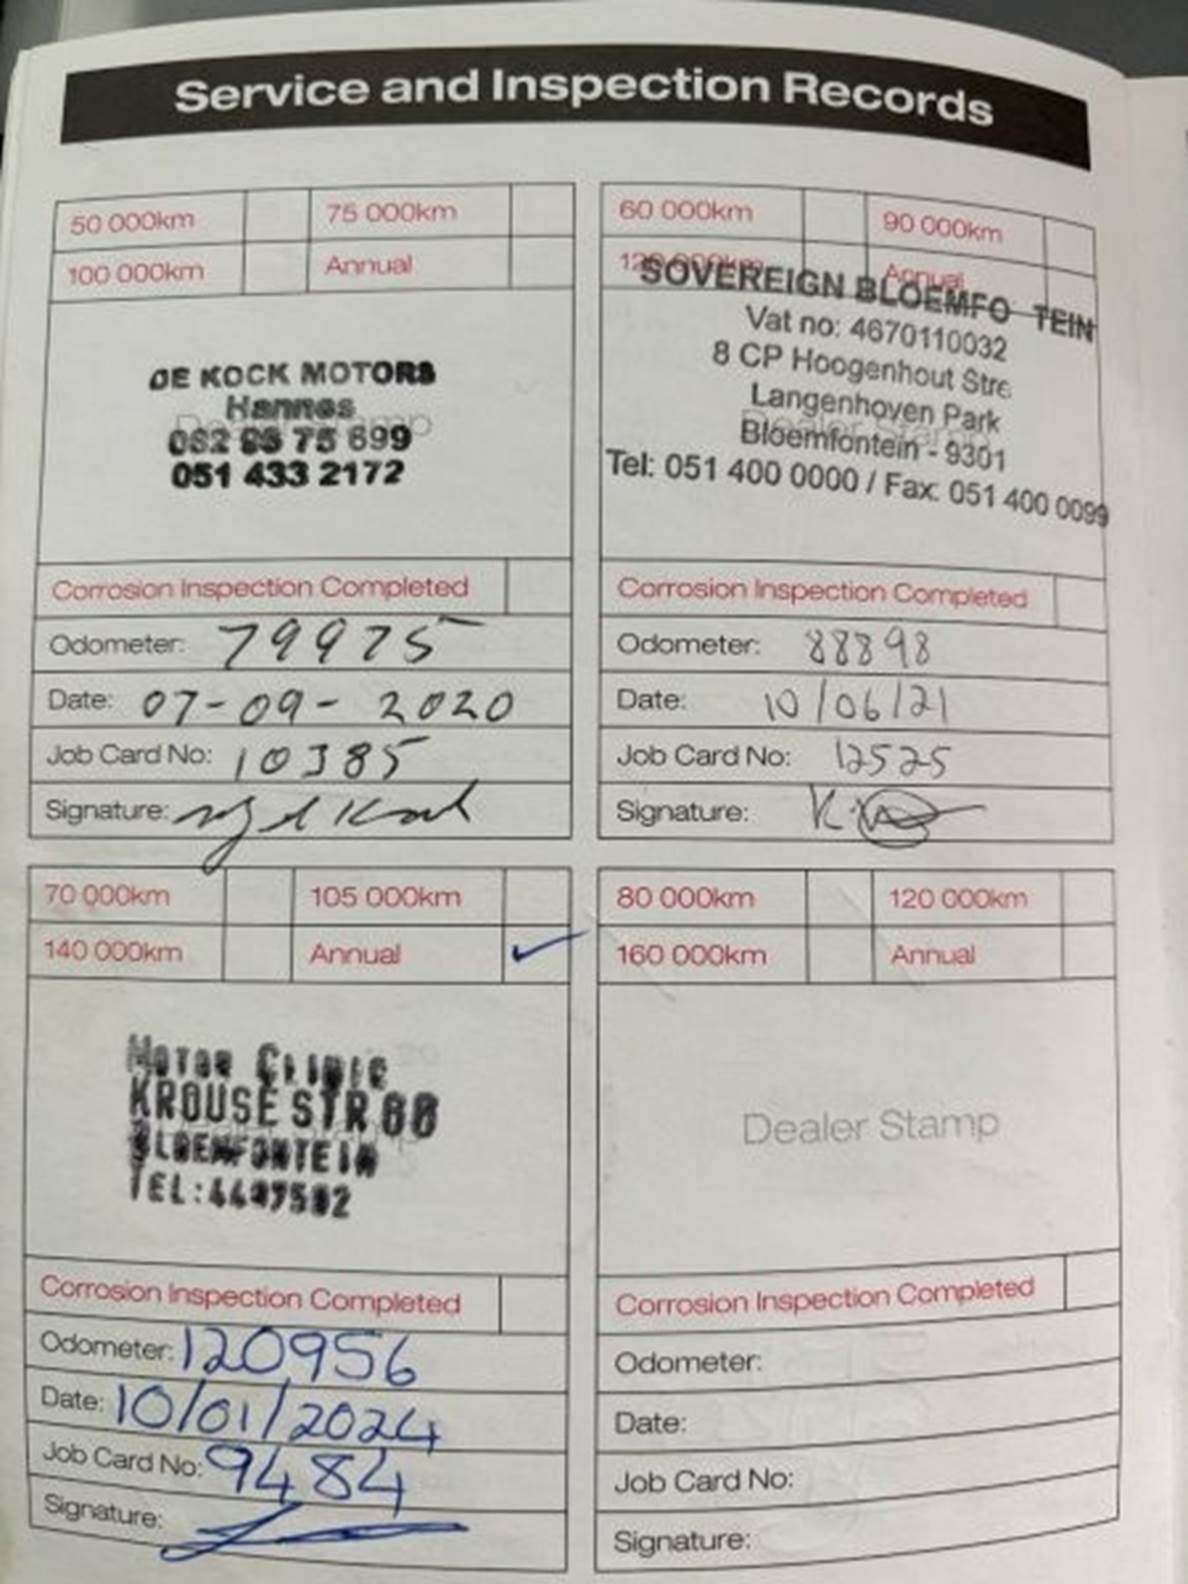 Service and Inspection Records
50 000km 75 000km
100 000km Annual
DE KOCK MOTORS
Hannes
051 433 2172
Corrosion Inspection Completed
Odometer: 79975
Date: 07-09-2020
Job Card No: 10385
Signature:
60 000km 90 000km
120 000km Annual
SOVEREIGN BLOEMFO TEIN
Vat no: 4670110032
8 CP Hoogenhout Stre
Langenhoven Park
Dealer Stamp
Bloemfontein - 9301
Tel: 051 400 0000 / Fax: 051 400 0099
Corrosion Inspection Completed
Odometer: 88898
Date: 10/06/21
Job Card No: 12525
Signature:
70 000km 105 000km
140 000km Annual ✓
MOTOR CLINIC
KROUSE STR
BLOEMFONTEIN
TEL:
Corrosion Inspection Completed
Odometer: 120956
Date: 10/01/2024
Job Card No: 9484
Signature:
80 000km 120 000km
160 000km Annual
Dealer Stamp
Corrosion Inspection Completed
Odometer:
Date:
Job Card No:
Signature: